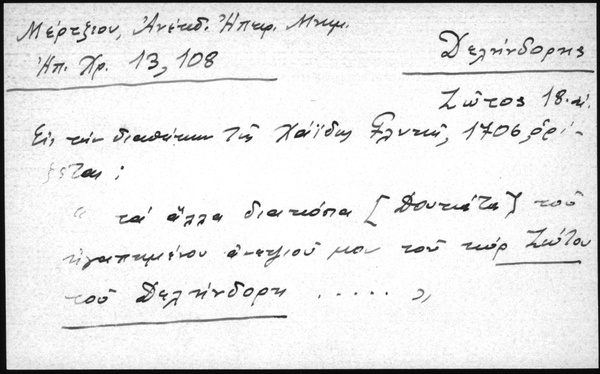 Μέρτζιου, Ἀνέκδ. Ἠπειρ. Μνημ.
Ἠπ. Χρ. 13, 108
Δεληνδόρης
Ζῶτος 18. αἰ.
Εἰς τὴν διαθήκην τῆς Χάϊδως Γλυκῆ, 1706 ὁρί-
ζεται:
" τὰ ἄλλα διακόσα [Δουκάτα] τοῦ
ἠγαπημένου ἀνεψιοῦ μου τοῦ κὺρ Ζώτου
τοῦ Δεληνδόρη ..... "